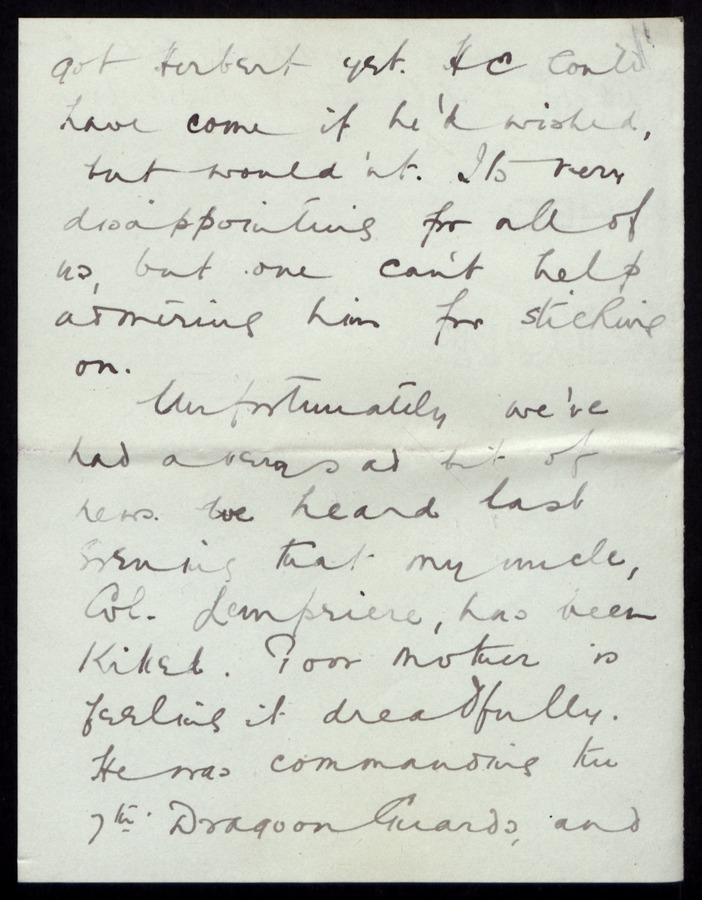 got Herbert yet. He could
have come if he'd wished,
but would'nt. Its very
disappointing for all of
us, but one can't help
admiring him for sticking
on.
Unfortunately we've
had a very sad bit of
news. We heard last
evening that my uncle,
Col. Lempriere, has been
Killed. Poor Mother is
feeling it dreadfully.
He was commanding the
7th. Dragoon Guards, and